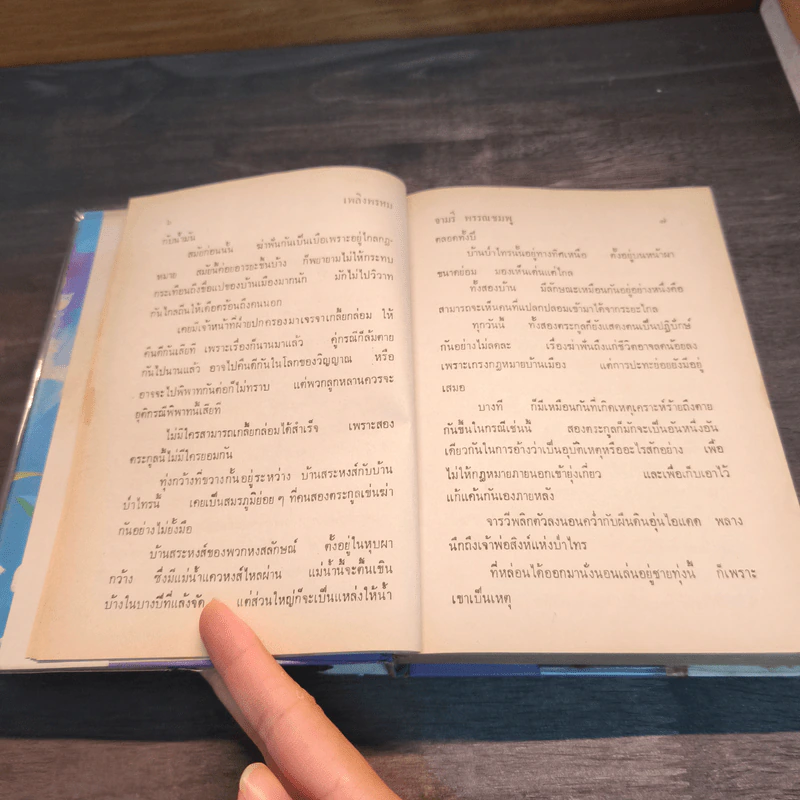 ๖ เพลิงพรหม
กับน้ำมัน
สมัยก่อนนั้น ฆ่าฟันกันเป็นเบือเพราะอยู่ไกลกฎ-
หมาย สมัยนี้ค่อยอารยะขึ้นบ้าง ก็พยายามไม่ให้กระทบ
กระเทือนถึงชื่อแปของบ้านเมืองมากนัก มักไม่ไปวิวาท
กันไกลถิ่นให้เดือดร้อนถึงคนนอก
เคยมีเจ้าหน้าที่ฝ่ายปกครองมาเจรจาเกลี้ยกล่อม ให้
คืนดีกันเสียที เพราะเรื่องก็นานมาแล้ว คู่กรณีก็ล้มตาย
กันไปนานแล้ว อาจไปคืนดีกันในโลกของวิญญาณ หรือ
อาจจะไปพิพาทกันต่อก็ไม่ทราบ แต่พวกลูกหลานควรจะ
ยุติกรณีพิพาทนี้เสียที
ไม่มีใครสามารถเกลี้ยกล่อมได้สำเร็จ เพราะสอง
ตระกูลนี้ไม่มีใครยอมกัน
ทุ่งกว้างที่ขวางกั้นอยู่ระหว่าง บ้านสระหงส์กับบ้าน
ป่าไทรนี้ เคยเป็นสมรภูมิย่อย ๆ ที่คนสองตระกูลเข่นฆ่า
กันอย่างไม่ยั้งมือ
บ้านสระหงส์ของพวกหงสลักษณ์ ตั้งอยู่ในหุบผา
กว้าง ซึ่งมีแม่น้ำแควหงส์ไหลผ่าน แม่น้ำนี้จะตื้นเขิน
บ้างในบางปีที่แล้งจัด แต่ส่วนใหญ่ก็จะเป็นแหล่งให้น้ำ
จามรี พรรณชมพู ๗
ตลอดทั้งปี
บ้านป่าไทรนั้นอยู่ทางทิศเหนือ ตั้งอยู่บนหน้าผา
ขนาดย่อม มองเห็นเด่นแต่ไกล
ทั้งสองบ้าน มีลักษณะเหมือนกันอยู่อย่างหนึ่งคือ
สามารถจะเห็นคนที่แปลกปลอมเข้ามาได้จากระยะไกล
ทุกวันนี้ ทั้งสองตระกูลก็ยังแสดงตนเป็นปฏิปักษ์
กันอย่างไม่ลดละ เรื่องฆ่าฟันถึงแก่ชีวิตอาจลดน้อยลง
เพราะเกรงกฎหมายบ้านเมือง แต่การปะทะย่อยยังมีอยู่
เสมอ
บางที ก็มีเหมือนกันที่เกิดเหตุเคราะห์ร้ายถึงตาย
กันขึ้นในกรณีเช่นนี้ สองตระกูลก็มักจะเป็นอันหนึ่งอัน
เดียวกันในการอ้างว่าเป็นอุบัติเหตุหรืออะไรสักอย่าง เพื่อ
ไม่ให้กฎหมายภายนอกเข้ายุ่งเกี่ยว และเพื่อเก็บเอาไว้
แก้แค้นกันเองภายหลัง
จารวีพลิกตัวลงนอนคว่ำกับผืนดินอุ่นไอแดด พลาง
นึกถึงเจ้าพ่อสิงห์แห่งป่าไทร
ที่หล่อนได้ออกมานั่งนอนเล่นอยู่ชายทุ่งนี้ ก็เพราะ
เขาเป็นเหตุ